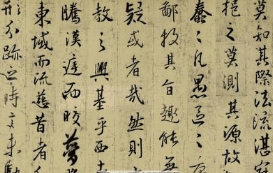 莫知其際法流湛寂
挹之莫測其源故
蠢〻凡愚區〻庸
鄙投其旨趣能無
疑或者哉然則大
教之興基乎西土
騰漢庭而皎夢
東域而流慈昔者
形分跡之時言未馳